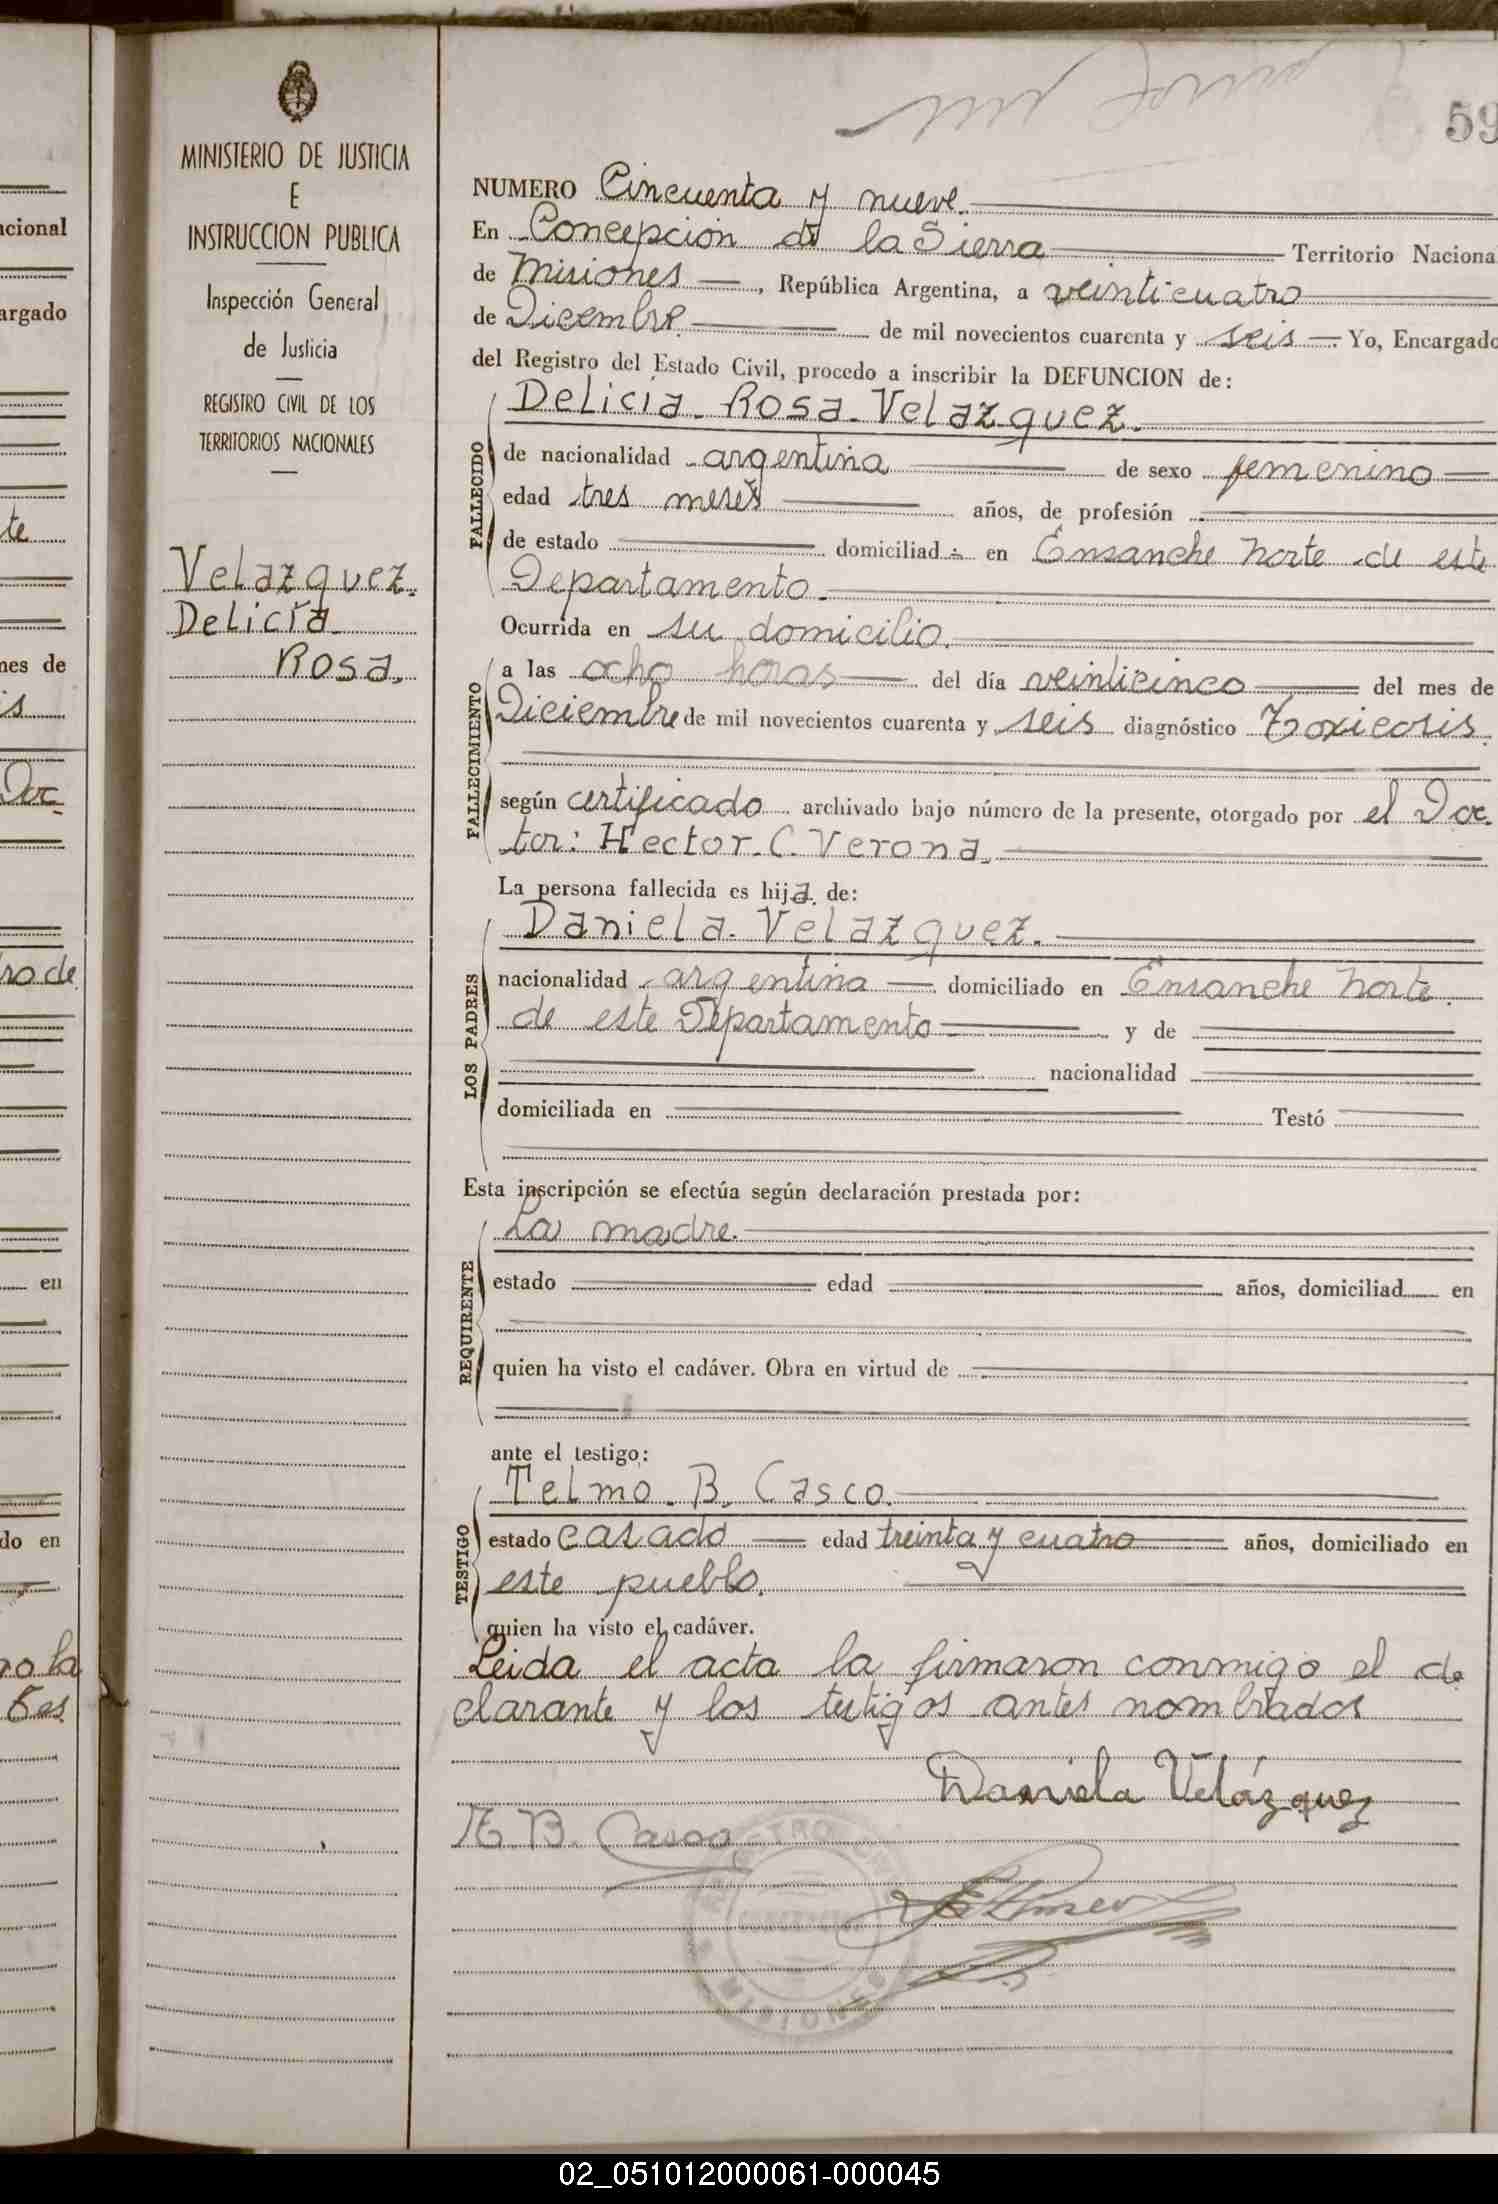 59
MINISTERIO DE JUSTICIA
E
INSTRUCCION PUBLICA
Inspección General
de Justicia
REGISTRO CIVIL DE LOS
TERRITORIOS NACIONALES
Velazquez.
Delicia
Rosa.
NUMERO Cincuenta y nueve.
En Concepción de la Sierra Territorio Naciona
de Misiones, República Argentina, a veinticuatro
de Dicembre de mil novecientos cuarenta y seis. Yo, Encargado
del Registro del Estado Civil, procedo a inscribir la DEFUNCION de:
FALLECIDO
Delicia. Rosa. Velazquez.
de nacionalidad argentina de sexo femenino
edad tres meses años, de profesión
de estado domiciliad en Ensanche Norte de este
Departamento.
Ocurrida en su domicilio.
FALLECIMIENTO
a las ocho horas del día veinticinco del mes de
Diciembre de mil novecientos cuarenta y seis diagnóstico Toxicosis.
según certificado archivado bajo número de la presente, otorgado por el Doc
tor: Hector. C. Verona.
La persona fallecida es hija de:
LOS PADRES
Daniela. Velazquez.
nacionalidad argentina domiciliado en Ensanche Norte
de este Departamento y de
nacionalidad
domiciliada en Testó
Esta inscripción se efectúa según declaración prestada por:
REQUIRENTE
La madre.
estado edad años, domiciliad en
quien ha visto el cadáver. Obra en virtud de
ante el testigo:
TESTIGO
Telmo. B. Casco.
estado casado edad treinta y cuatro años, domiciliado en
este pueblo.
quien ha visto el cadáver.
Leida el acta la firmaron conmigo el de
clarante y los testigos antes nombrados
Daniela Velázquez
T. B. Casco
MISIONES
acional
argado
te
mes de
is
Doc
ro de
en
do en
ro la
02_051012000061-000045